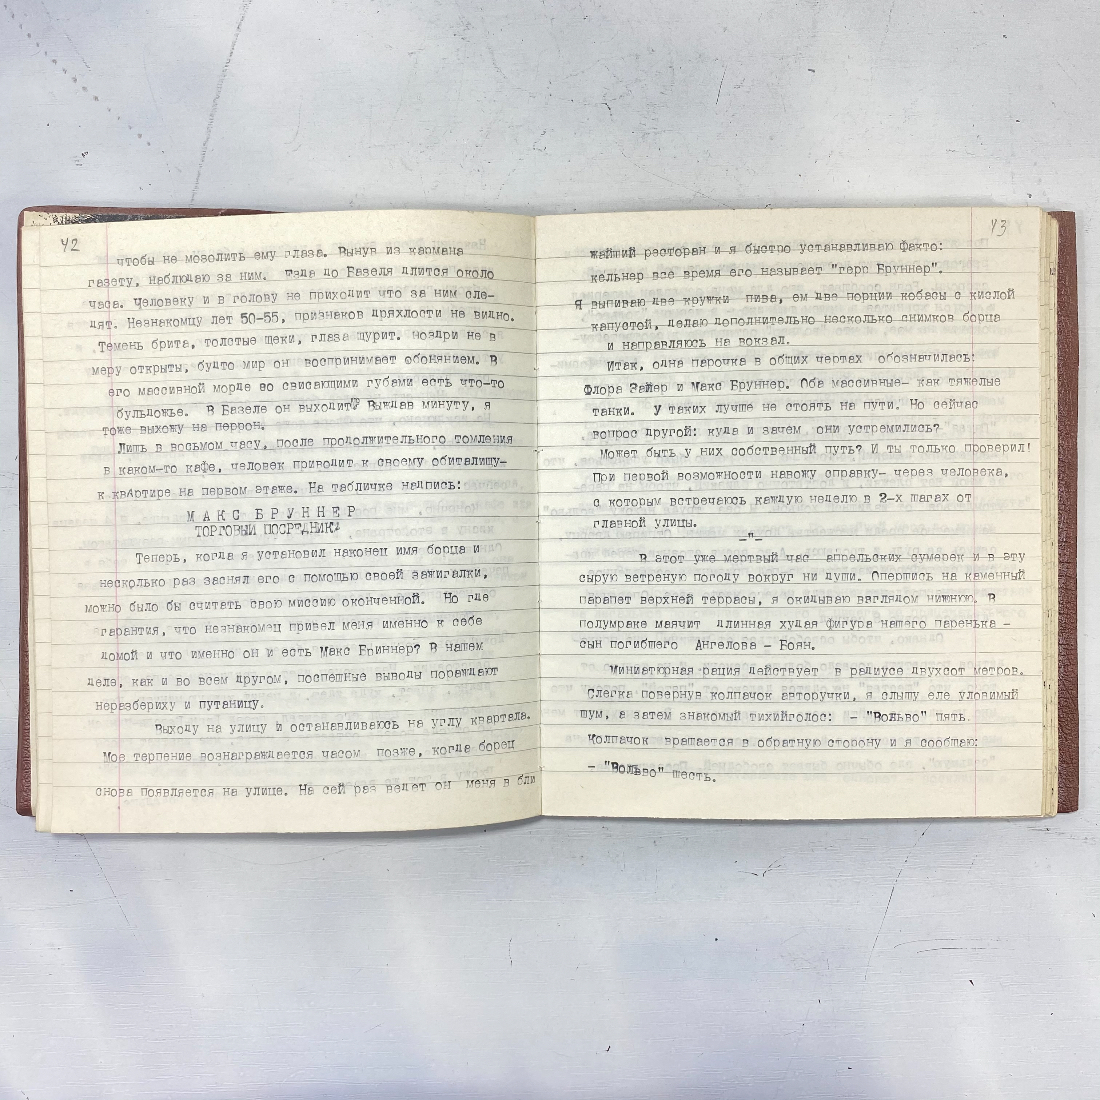 42
чтобы не мозолить ему глаза. Вынув из кармана
газету, наблюдаю за ним. Езда до Базеля длится около
часа. Человеку и в голову не приходит что за ним сле-
дят. Незнакомцу лет 50-55, признаков дряхлости не видно.
Темень брита, толстые щеки, глаза щурит. ноздри не в
меру открыты, будто мир он воспринимает обонянием. В
его массивной морде со свисающими губами есть что-то
бульдожье. В Базеле он выходит. Выждав минуту, я
тоже выхожу на перрон.
Лишь в восьмом часу, после продолжительного томления
в каком-то кафе, человек приводит к своему обиталищу-
к квартире на первом этаже. На табличке надпись:
МАКС БРУННЕР
ТОРГОВЫЙ ПОСРЕДНИК
Теперь, когда я установил наконец имя борца и
несколько раз заснял его с помощью своей зажигалки,
можно было бы считать свою миссию оконченной. Но где
гарантия, что незнакомец привел меня именно к себе
домой и что именно он и есть Макс Бриннер? В нашем
деле, как и во всем другом, поспешные выводы пораждают
неразбериху и путаницу.
Выходу на улицу и останавливаюсь на углу квартала.
Мое терпение вознаграждается часом позже, когда борец
снова появляется на улице. На сей раз ведет он меня в бли
43
жайший ресторан и я быстро устанавливаю факто:
кельнер все время его называет "герр Бруннер".
Я выпиваю две кружки пива, ем две порции кобасы с кислой
капустой, делаю дополнительно несколько снимков борца
и направляюсь на вокзал.
Итак, одна парочка в общих чертах обозначилась:
Флора Зайлер и Макс Бруннер. Оба массивные- как тяжелые
танки. У таких лучше не стоять на пути. Но сейчас
вопрос другой: куда и зачем они устремились?
Может быть у них собственный путь? И ты только проверил!
При первой возможности навожу справку- через человека,
с которым встречаюсь каждую неделю в 2-х шагах от
главной улицы.
-"-
В этот уже мертвый час апрельских сумерек и в эту
сырую ветреную погоду вокруг ни души. Опершись на каменный
парапет верхней террасы, я окидываю взглядом нижнюю. В
полумраке маячит длинная худая фигура нашего паренька -
сын погибшего Ангелова - Боян.
Миниатюрная рация действует в радиусе двухсот метров.
Слегка повернув колпачок авторучки, я слышу еле уловимый
шум, а затем знакомый тихийголос: - "Вольво" пять.
Колпачок вращается в обратную сторону и я сообщаю:
- "Вольво" шесть.